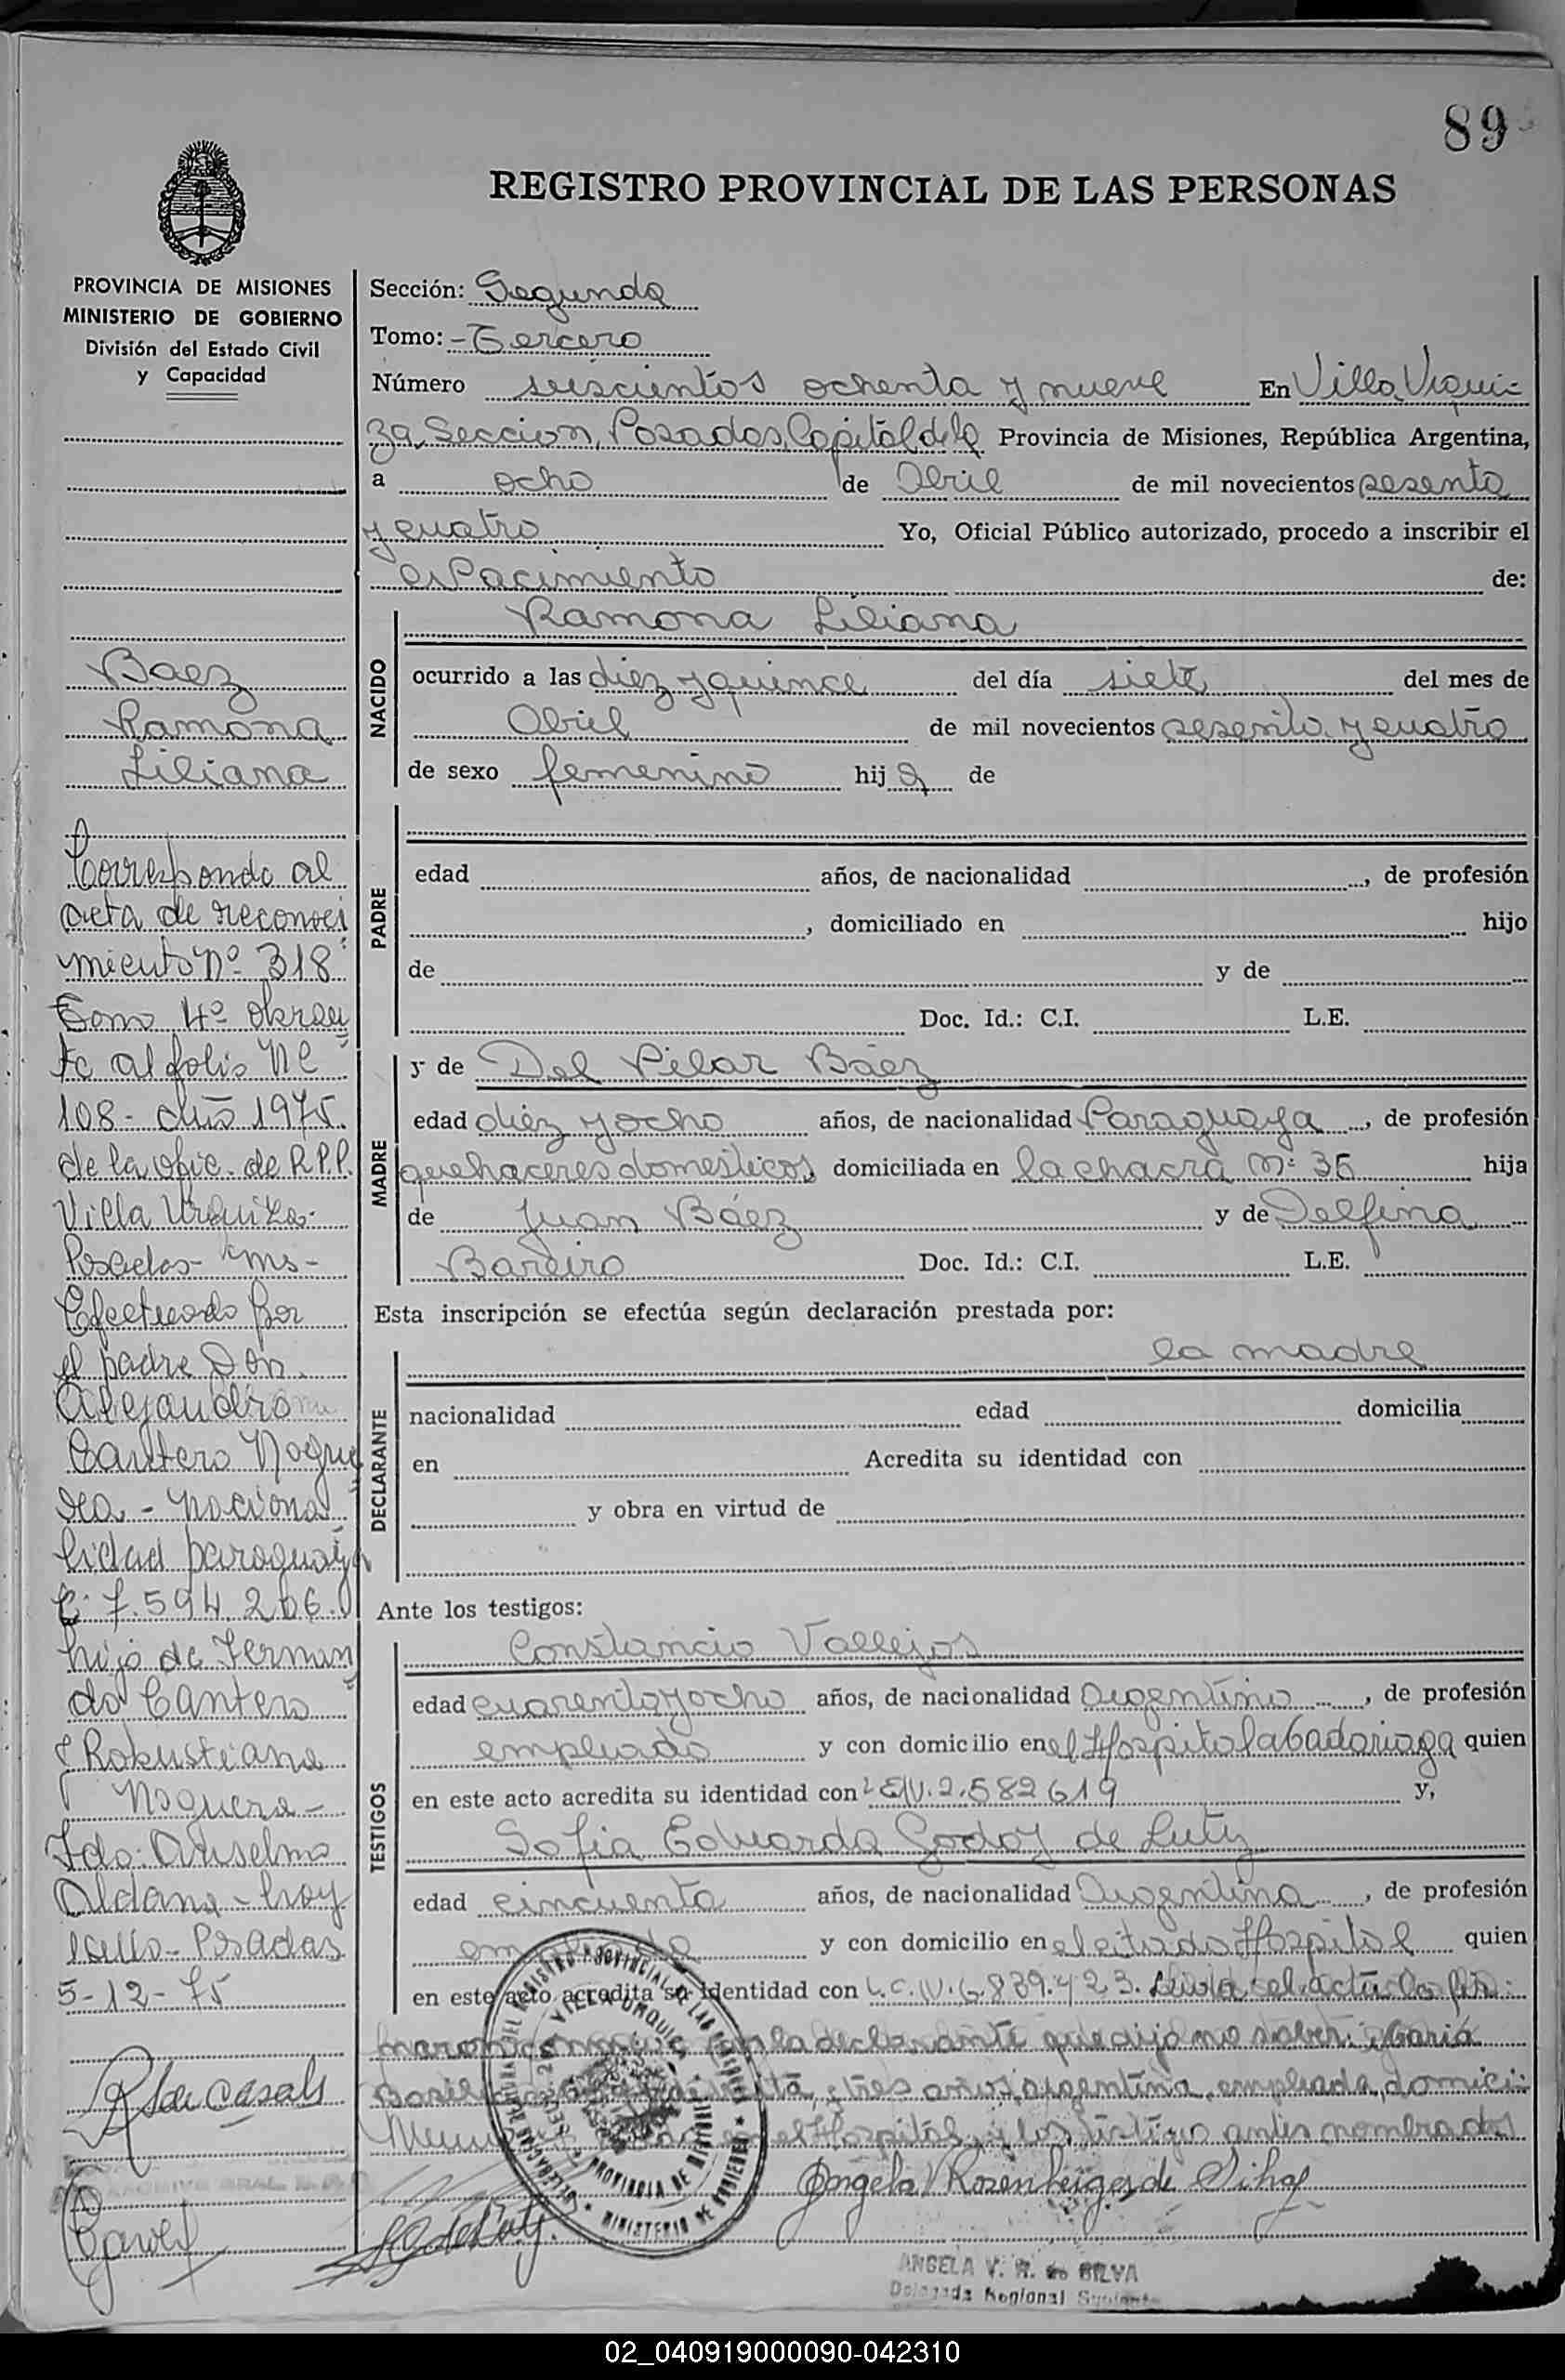 89
REGISTRO PROVINCIAL DE LAS PERSONAS
PROVINCIA DE MISIONES
MINISTERIO DE GOBIERNO
División del Estado Civil
y Capacidad
Baez
Ramona
Liliana
Corresponde al
acta de reconoci
miento Nº 318
Tomo 4º obran
te al folio Nº
108 - año 1975.
de la ofic. de R.P.P.
Villa Urquiza-
Posadas - Ms-
Efectuado por
el padre Don
Alejandro
Cantero Nogue
ra - naciona
lidad paraguaya
C. 7.594.206.
hijo de Fernan
do Cantero
Robustiana
Noguera-
Fdo: Anselmo
Aldana - hay
sello - Posadas
5-12-75
Sección: Segunda
Tomo: - Tercero
Número seiscientos ochenta y nueve En Villa Urqui-
za, Seccion, Posadas, Capital de la Provincia de Misiones, República Argentina,
a ocho de Abril de mil novecientos sesenta
y cuatro Yo, Oficial Público autorizado, procedo a inscribir el
nacimiento de:
NACIDO
Ramona Liliana
ocurrido a las diez y quince del día siete del mes de
Abril de mil novecientos sesenta y cuatro
de sexo femenino hija de
PADRE
edad años, de nacionalidad , de profesión
, domiciliado en hijo
de y de
Doc. Id.: C.I. L.E.
MADRE
y de Del Pilar Báez
edad diez y ocho años, de nacionalidad Paraguaya , de profesión
quehaceres domesticos domiciliada en la chacra Nº 36 hija
de Juan Báez y de Delfina
Bareiro Doc. Id.: C.I. L.E.
Esta inscripción se efectúa según declaración prestada por:
DECLARANTE
la madre
nacionalidad edad domicilia
en Acredita su identidad con
y obra en virtud de
Ante los testigos:
TESTIGOS
Constancio Vallejos
edad cuarenta y ocho años, de nacionalidad Argentino , de profesión
empleado y con domicilio en el Hospital abadariaga quien
en este acto acredita su identidad con L.E.N. 2.582619 y,
Sofia Eduarda Godoy de Lutz
edad cincuenta años, de nacionalidad Argentina , de profesión
y con domicilio en el citado Hospital quien
en este acto acredita su identidad con L.C.N. 6.839.423. el acta la fir-
maron la declarante que dijo no saber; Maria
tres años, argentina, empleada, domici-
en el Hospital, y los testigos antes nombrados
Angela V Rosenberger de Silva
ANGELA V. R. de SILVA
Delegada Regional Suplente
02_040919000090-042310